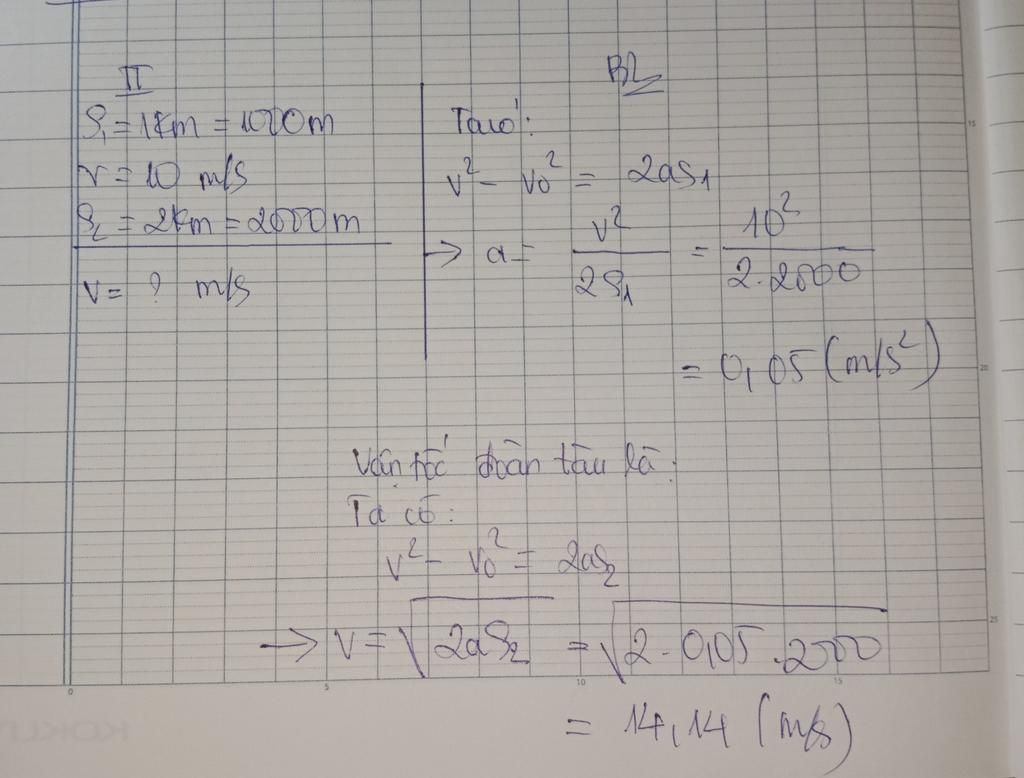 II
S₁ = 1km = 1000m
v = 10 m/s
S₂ = 2km = 2000m
v = ? m/s
BL
Ta có:
v² - v₀² = 2aS₁
→ a = v² / 2S₁ = 10² / 2.2000
= 0,05 (m/s²)
Vận tốc đoàn tàu là:
Ta có:
v² - v₀² = 2aS₂
→ v = √2aS₂ = √2.0,05.2000
= 14,14 (m/s)
15
20
25
0
5
10
15